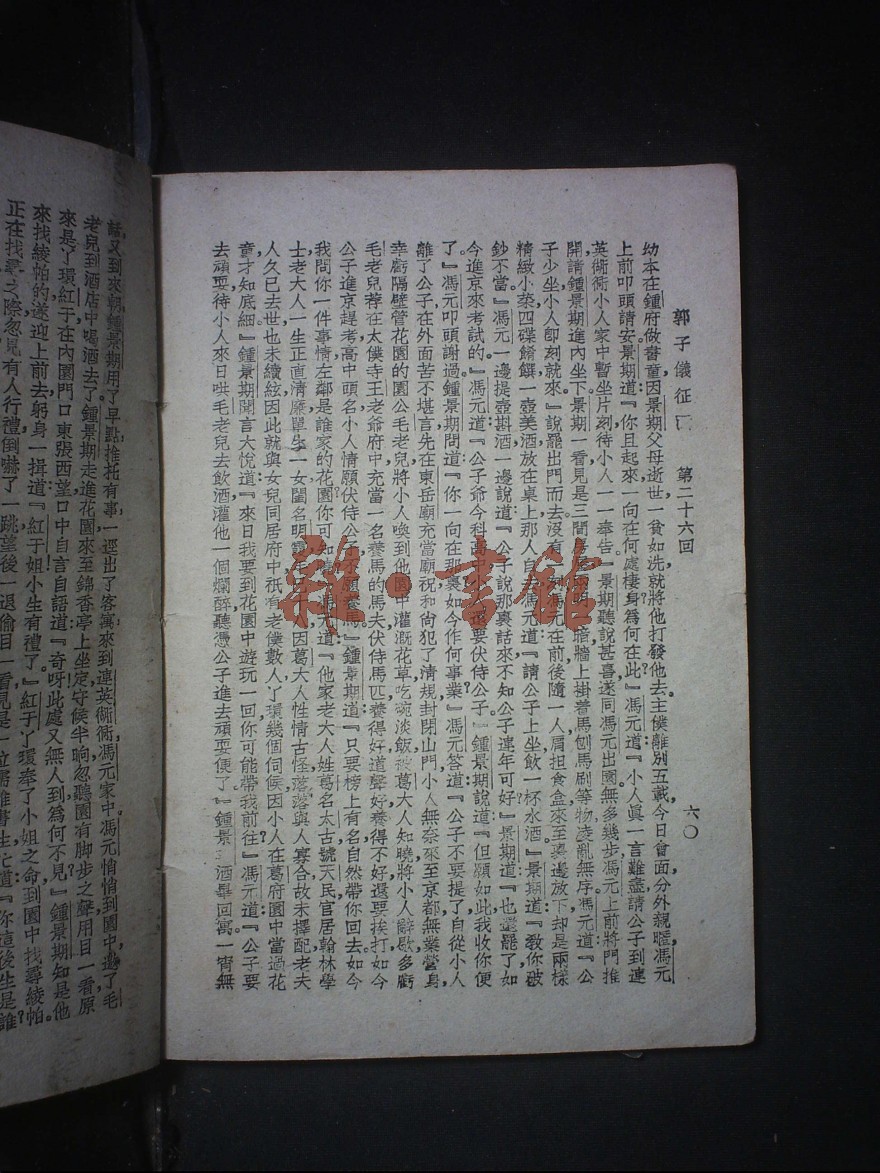 郭子儀征 第二十六回 六〇
幼本在鍾府做書童因景期父母逝世一貧如洗就將他打發他去主僕離別五載今日會面分外親暱馮元
上前叩頭請安景期道『你且起來一向在何處棲身為何在此』馮元道『小人眞一言難盡請公子到連
英衚衕小人家中暫坐片刻待小人一一奉告』景期聽說甚喜遂同馮元出園無多幾步馮元上前將門推
開請鍾景期進內坐下景期一看見是三間房 牆上掛着馬刨馬刷等物凌亂無序馮元道『公
子少坐小人卽刻就來』說罷出門而去沒有 刻馮元在前後隨一人肩担食盒來至裏邊放下却是兩樣
精緻小菜四碟餚饌一壺美酒放在桌上那人自去馮元道『請公子上坐飲一杯水酒』景期道『教你破
鈔不當』馮元一邊提壺斟酒一邊說道『公子說那裏話來不知公子連年可好』景期道『也還罷了如
今進京來考試的』馮元道『公子爺今科高中小人還要伏侍公子』鍾景期說道『但願如此我收你便
了』馮元叩頭謝過鍾景期問道『你一向在那裏如今作何事業』馮元答道『公子不要提了自從小人
離了公子在外面苦不堪言先在東岳廟充當廟祝和尙犯了淸規封閉山門小人無奈來至京都無業營身
幸虧隔壁管花園的園公毛老兒將小人喚到他園中灌溉花草吃碗淡飯被葛大人知曉將小人辭歇多虧
毛老兒荐在太僕寺王老爺府中充當一名養馬的馬夫伏侍馬匹養得好道聲好養得不好還要挨打如今
公子進京趕考高中頭名小人情願伏侍公子不願養馬』鍾景期道『只要榜上有名自然帶你回去如今
我問你一件事情左鄰是誰家的花園你可知 馮元道『他家老大人姓葛名太古號天民官居翰林學
士老大人一生正直淸廉單生一女閨名明霞年 因葛大人性情古怪落落與人寡合故未擇配老夫
人久已去世也未續絃因此就與女兒同居府中祇有老僕數人丫環幾個伺候因小人在葛府園中當過花
童才知底細』鍾景期聞言大悅道『來日我要到花園中遊玩一回你可能帶我前往』馮元道『公子要
去頑耍待小人來日哄毛老兒去飲酒灌他一個爛醉聽憑公子進去頑耍便了』鍾景 酒畢回寓一宵無
話又到來朝鍾景期用了早點推托有事一逕出了客寓來到連英衚衕馮元家中馮元悄悄到園中邀了毛
老兒到酒店中喝酒去了鍾景期走進花園來至錦香亭上坐定守候半晌忽聽園有脚步之聲用目一看原
來是丫環紅于在內園門口東張西望口中自言自語道『奇呀此處又無人到為何不見』鍾景期知是他
來找綾帕的遂迎上前去躬身一揖道『紅于姐小生有禮了』紅于丫環奉了小姐之命到園中找尋綾帕
正在找尋之際忽見有人行禮倒嚇了一跳望後一退偷目一看見是一位 生忙道『你這後生是誰
雜·書館